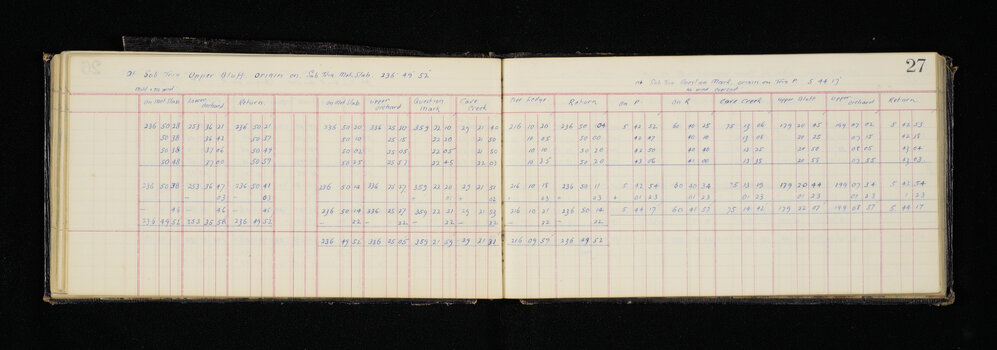 27
At Sub Trig Upper Bluff. Origin on Sub Trig Met. Slab. 236 49 52
At Sub Trig Question Mark, origin on Trig P. 5 44 17
On Met Slab Lower Orchard Return On Met Slab Upper Orchard Question Mark Cave Creek Tree Ledge Return On P On R Cave Creek Upper Bluff Upper Orchard Return
236 50 28 253 36 21 236 50 21 236 50 20 336 25 20 359 22 10 29 21 40 216 10 20 236 50 04 5 42 52 60 40 25 75 13 06 179 20 45 199 07 02 5 42 53
50 38 36 42 50 37 50 10 25 15 22 20 21 50 10 05 50 00 42 47 40 10 13 08 20 25 07 15 42 18
50 38 37 06 50 47 50 02 25 05 22 05 21 50 10 10 50 20 42 50 40 40 13 25 20 50 08 05 43 04
50 48 37 00 50 59 50 25 25 57 22 45 22 07 10 35 50 20 43 06 41 00 13 35 20 55 07 55 43 03
236 50 38 253 36 47 236 50 41 236 50 14 336 25 27 359 22 20 29 21 51 216 10 18 236 50 11 5 42 54 60 40 34 75 13 19 179 20 44 199 07 34 5 42 54
- 03 - 03 - 01 + 02 + 03 03 + 01 23 01 23 01 23 01 23 01 23 1 23
- 46 - 46 - 46 236 50 14 336 25 27 359 22 21 29 21 53 216 10 21 236 50 14 5 44 17 60 41 57 75 14 42 179 22 07 199 08 57 5 44 17
236 49 52 253 35 58 236 49 52 - 22 - 22 - 22 - 22 - 22 - 22
236 49 52 336 25 05 359 21 59 29 21 31 216 09 59 236 49 52